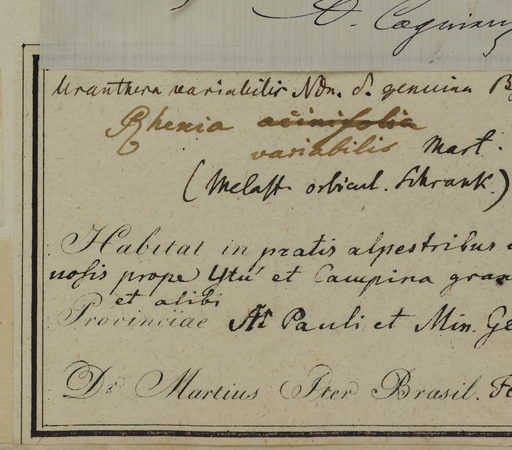 A. Cogniaux
Uranthera variabilis Ndn. δ. genuina
Rhexia acinifolia
variabilis Mart.
(Melast. orbicul. Schrank.)
Habitat in pratis alpestribus
nosis prope Ytú et Campina gran
et alibi
Provinciae Pauli et Min. Ge
Dr Martius Iter Brasil.